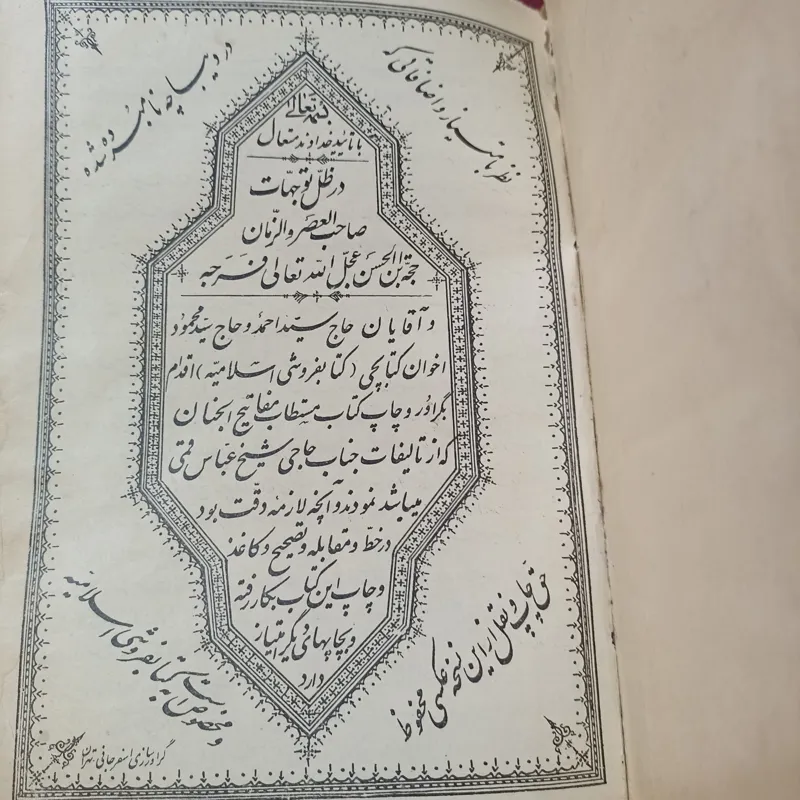 بسمه تعالی
با تائید خداوند متعال
در ظلّ توجهّات
صاحب العصر و الزّمان
حجة بن الحسن عجّل اللّه تعالی فرجه
و آقایان حاج سیّد احمد و حاج سیّد محمود
اخوان کتابچی (کتابفروشی اسلامیّه) اقدام
بگراور و چاپ کتاب مستطاب مفاتیح الجنان
که از تالیفات جناب حاجی شیخ عبّاس قمّی
میباشد نمودند و آنچه لازمه دقّت بود
در خطّ و مقابله و تصحیح و کاغذ
و چاپ این کتاب بکار رفته
و بچاپهای دیگر امتیاز
دارد
نظر بامتیاز و اضافاتی که
در دیباچه نامبرده شده
حق چاپ و نقل از این نسخه عکسی محفوظ
و مخصوص است بکتابفروشی اسلامیّه
گراورسازی اسفرجانی تهران